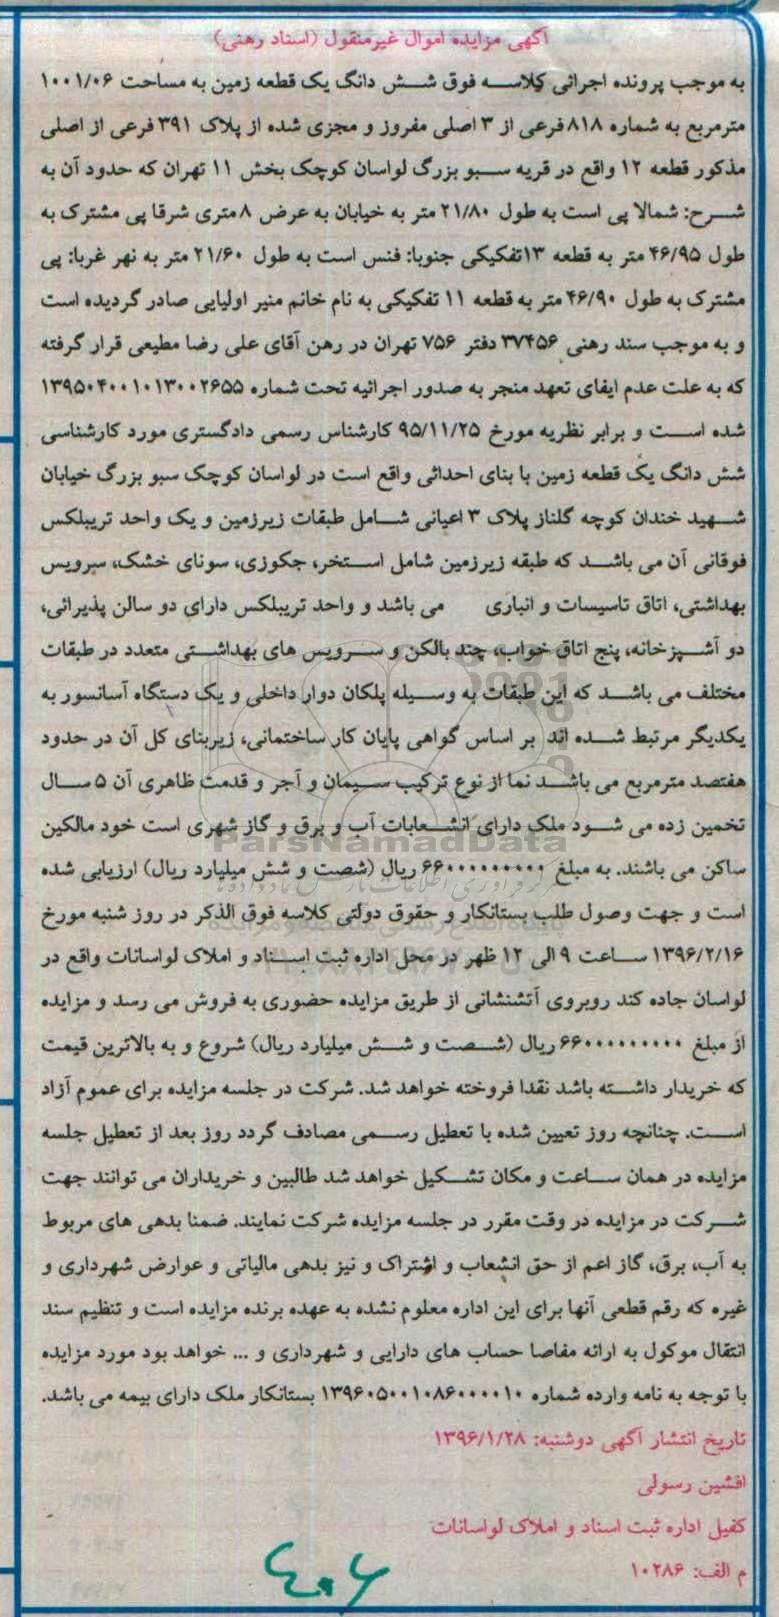 آگهی مزایده اموال غیرمنقول (اسناد رهنی)
به موجب پرونده اجرائی کلاسه فوق شش دانگ یک قطعه زمین به مساحت ۱۰۰۱/۰۶
مترمربع به شماره ۸۱۸ فرعی از ۳ اصلی مفروز و مجزی شده از پلاک ۳۹۱ فرعی از اصلی
مذکور قطعه ۱۲ واقع در قریه سبو بزرگ لواسان کوچک بخش ۱۱ تهران که حدود آن به
شرح: شمالا پی است به طول ۲۱/۸۰ متر به خیابان به عرض ۸ متری شرقا پی مشترک به
طول ۴۶/۹۵ متر به قطعه ۱۳ تفکیکی جنوبا: فنس است به طول ۲۱/۶۰ متر به نهر غربا: پی
مشترک به طول ۴۶/۹۰ متر به قطعه ۱۱ تفکیکی به نام خانم منیر اولیایی صادر گردیده است
و به موجب سند رهنی ۳۷۴۵۶ دفتر ۷۵۶ تهران در رهن آقای علی رضا مطیعی قرار گرفته
که به علت عدم ایفای تعهد منجر به صدور اجرائیه تحت شماره ۱۳۹۵۰۴۰۰۱۰۱۳۰۰۲۶۵۵
شده است و برابر نظریه مورخ ۹۵/۱۱/۲۵ کارشناس رسمی دادگستری مورد کارشناسی
شش دانگ یک قطعه زمین با بنای احداثی واقع است در لواسان کوچک سبو بزرگ خیابان
شهید خندان کوچه گلناز پلاک ۳ اعیانی شامل طبقات زیرزمین و یک واحد تریبلکس
فوقانی آن می باشد که طبقه زیرزمین شامل استخر، جکوزی، سونای خشک، سرویس
بهداشتی، اتاق تاسیسات و انباری می باشد و واحد تریبلکس دارای دو سالن پذیرائی،
دو آشپزخانه، پنج اتاق خواب، چند بالکن و سرویس های بهداشتی متعدد در طبقات
مختلف می باشد که این طبقات به وسیله پلکان دوار داخلی و یک دستگاه آسانسور به
یکدیگر مرتبط شده اند بر اساس گواهی پایان کار ساختمانی، زیربنای کل آن در حدود
هفتصد مترمربع می باشد نما از نوع ترکیب سیمان و آجر و قدمت ظاهری آن ۵ سال
تخمین زده می شود ملک دارای انشعابات آب و برق و گاز شهری است خود مالکین
ParsNamadData
ساکن می باشند. به مبلغ ۶۶۰۰۰۰۰۰۰۰۰ ریال (شصت و شش میلیارد ریال) ارزیابی شده
است و جهت وصول طلب بستانکار و حقوق دولتی کلاسه فوق الذکر در روز شنبه مورخ
۱۳۹۶/۲/۱۶ ساعت ۹ الی ۱۲ ظهر در محل اداره ثبت اسناد و املاک لواسانات واقع در
لواسان جاده کند روبروی آتشنشانی از طریق مزایده حضوری به فروش می رسد و مزایده
از مبلغ ۶۶۰۰۰۰۰۰۰۰۰ ریال (شصت و شش میلیارد ریال) شروع و به بالاترین قیمت
که خریدار داشته باشد نقدا فروخته خواهد شد. شرکت در جلسه مزایده برای عموم آزاد
است. چنانچه روز تعیین شده با تعطیل رسمی مصادف گردد روز بعد از تعطیل جلسه
مزایده در همان ساعت و مکان تشکیل خواهد شد طالبین و خریداران می توانند جهت
شرکت در مزایده در وقت مقرر در جلسه مزایده شرکت نمایند. ضمنا بدهی های مربوط
به آب، برق، گاز اعم از حق انشعاب و اشتراک و نیز بدهی مالیاتی و عوارض شهرداری و
غیره که رقم قطعی آنها برای این اداره معلوم نشده به عهده برنده مزایده است و تنظیم سند
انتقال موکول به ارائه مفاصا حساب های دارایی و شهرداری و ... خواهد بود مورد مزایده
با توجه به نامه وارده شماره ۱۳۹۶۰۵۰۰۱۰۸۶۰۰۰۰۱۰ بستانکار ملک دارای بیمه می باشد.
تاریخ انتشار آگهی دوشنبه: ۱۳۹۶/۱/۲۸
افشین رسولی
کفیل اداره ثبت اسناد و املاک لواسانات
م الف: ۱۰۲۸۶